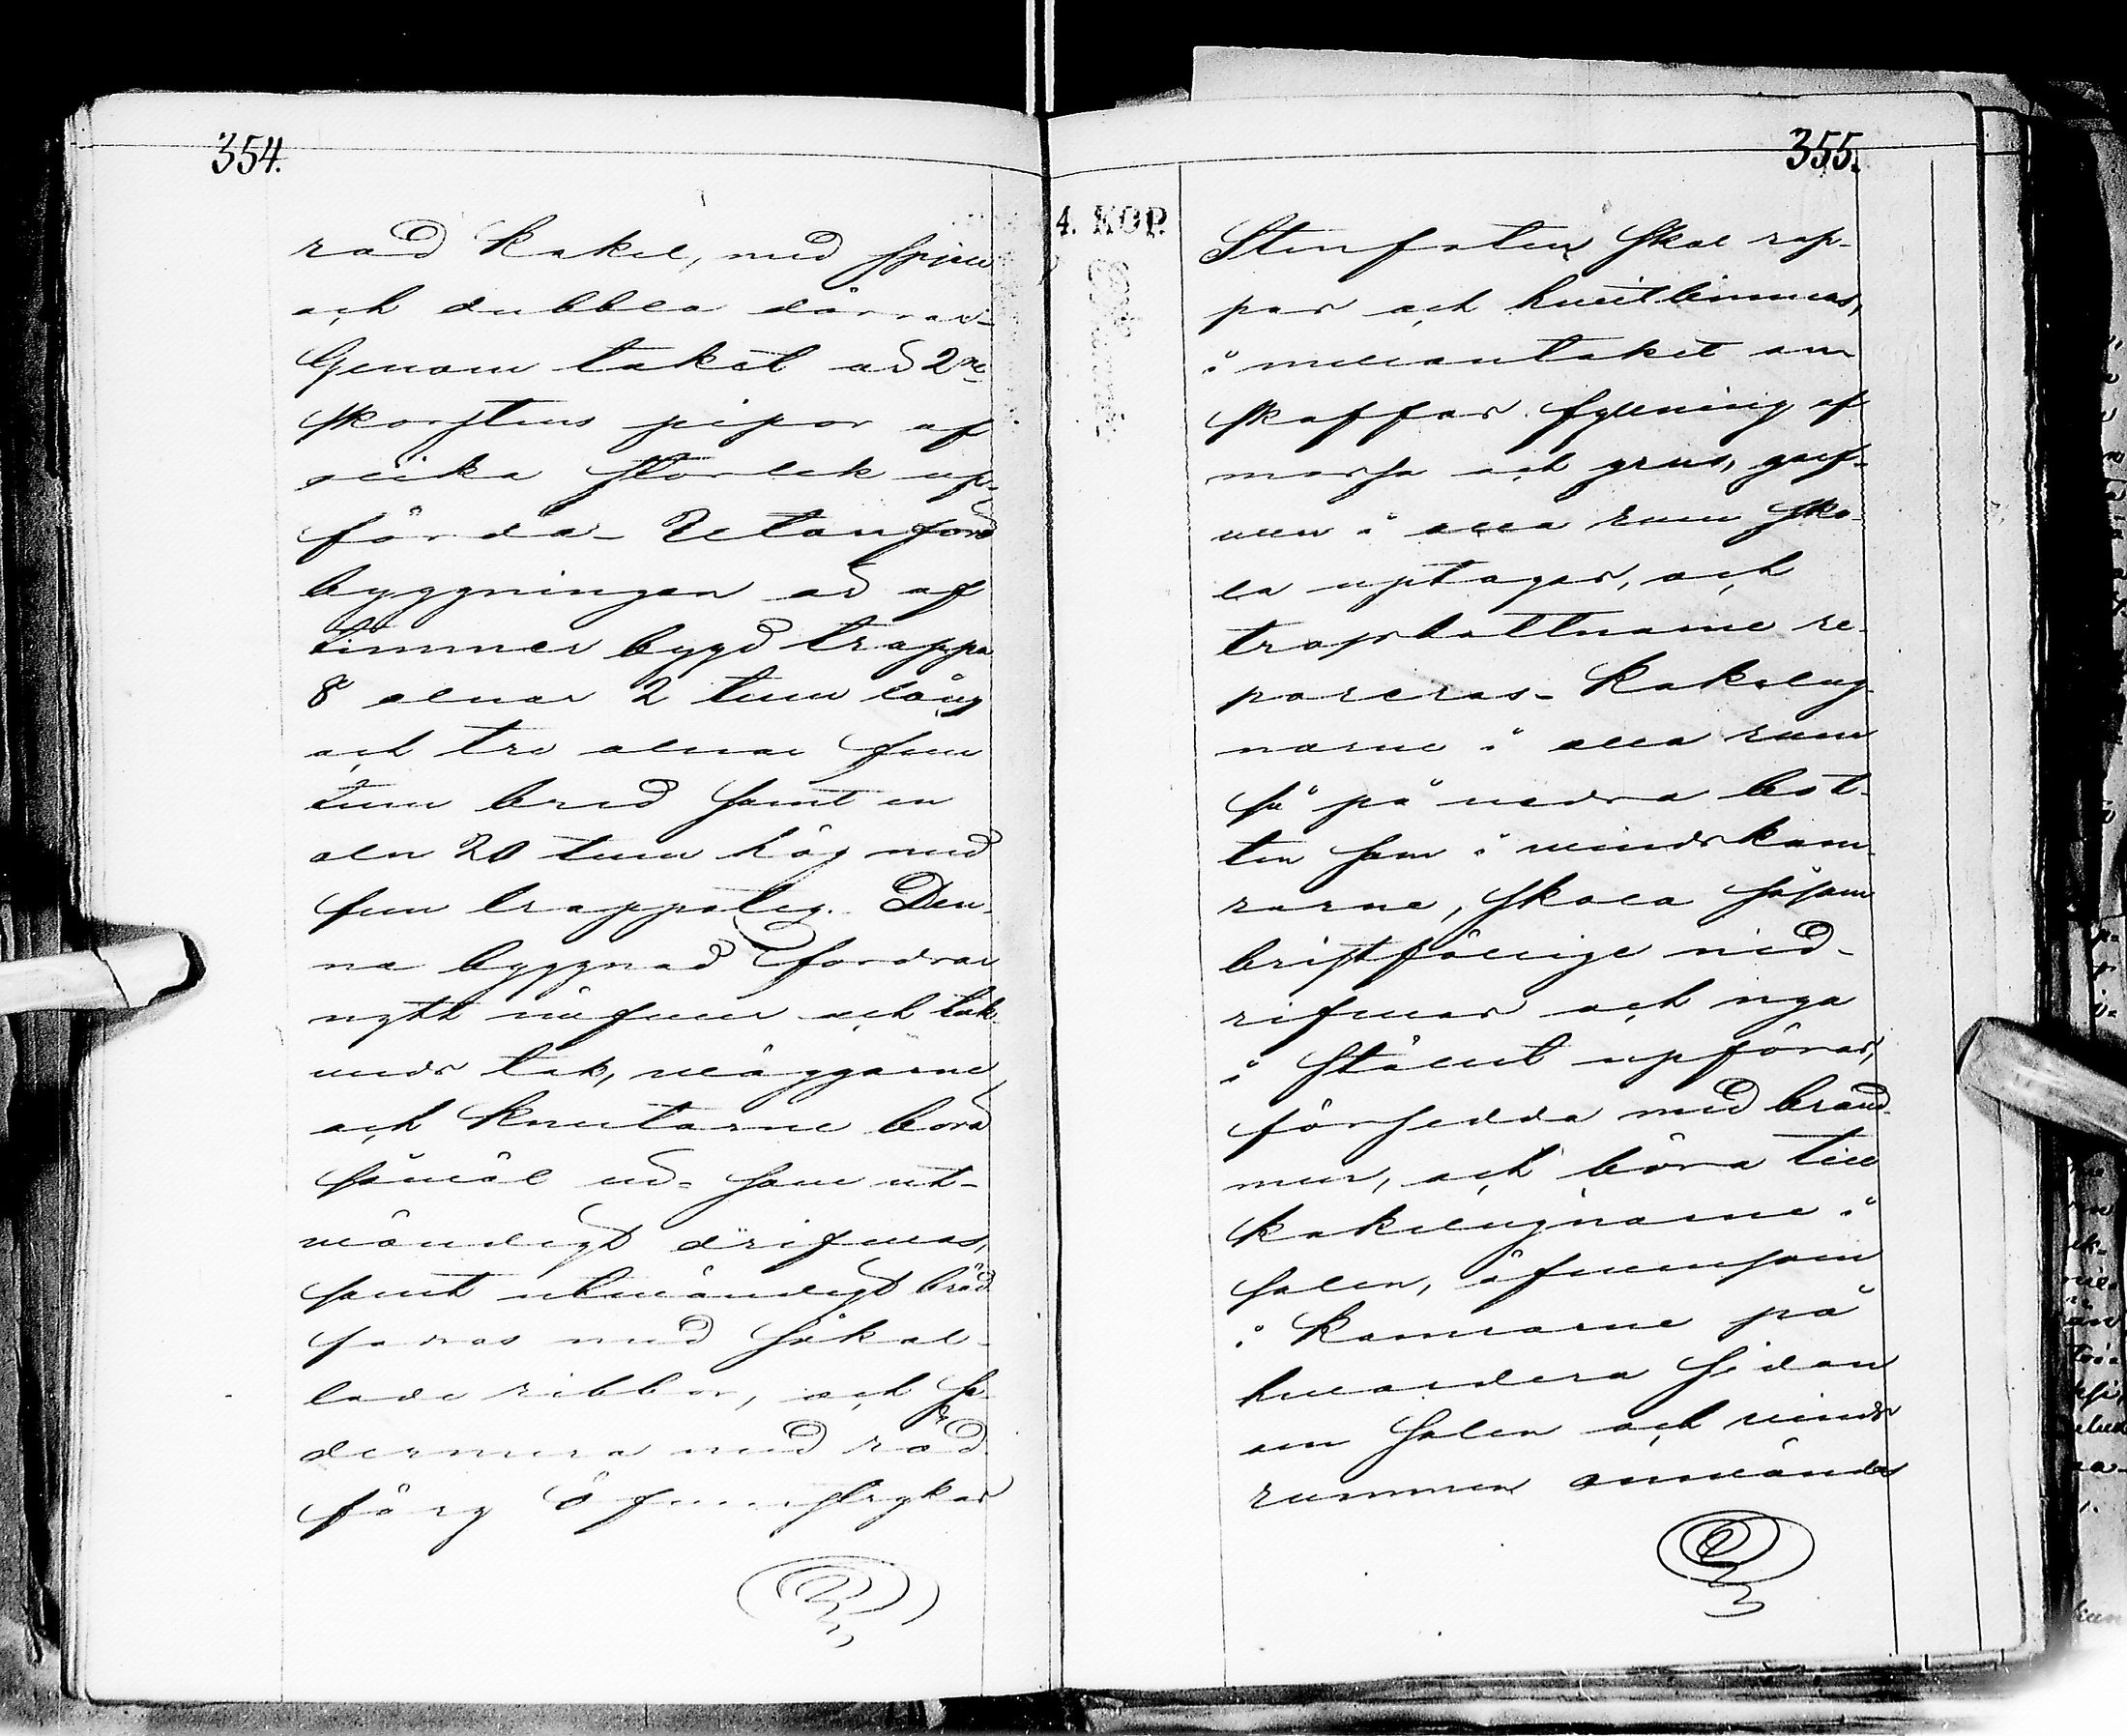 354.
rad kakel, med spjell
och dubbla dörrar.
Genom taket äro 2ne
skorstens pipor af
olika storlek up-
förda. Utanför
byggningen är af
timmer bygd trappa
8 alnar 2 tum lång
och tre alnar fem
tum bred samt en
aln 20 tum hög med
fem trappsteg. Den-
na byggnad fordrar
nytt näfver och tak-
veds tak, väggarne
och knutarne böra
såväl in- som ut-
vändigt drifvas,
samt utvändigt bräd
fodras med såkal-
lade ribbor, och se-
dermera med röd
färg öfverstrykas
355.
4. KOP.
Stenfoten skal rap-
pas och hvitlimmas,
i mellantaket an-
skaffas fyllning af
mossa och grus, golf-
ven i alla rum sko-
la uptagas, och
trossbottnarne re-
pareras. Kakelug-
narne i alla rum
så på nedra bot-
ten som i vindskam-
rarne, skola såsom
bristfällige ned-
rifvas och nya
i stället upföras,
försedda med brand-
mur, och böra till
kakelugnarne i
salen, äfvensom
i kamrarne på
hvardera sidan
om salen och vinds
rummen användas